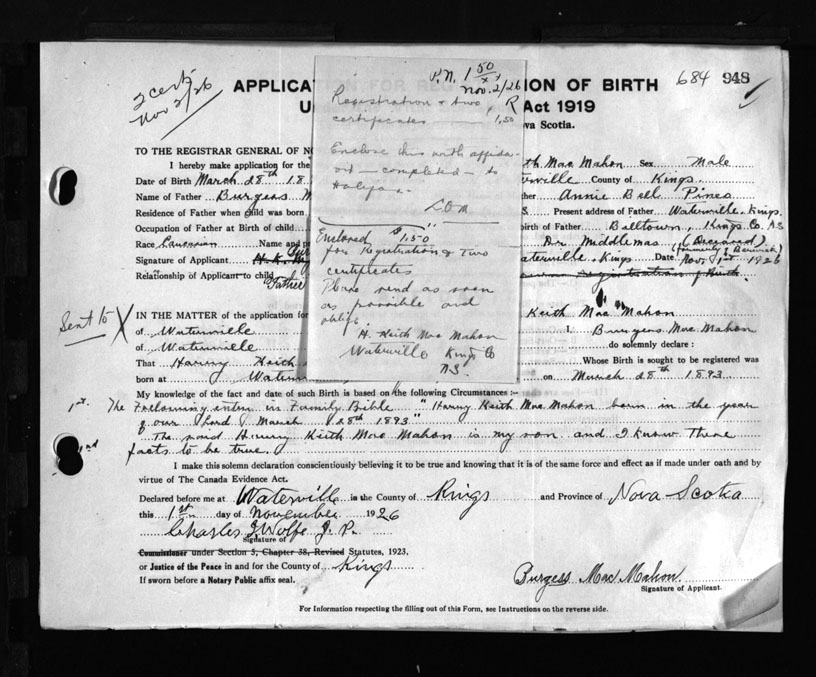 2 certs
Nov 2/26
APPLICA
ION OF BIRTH
684 948
U
Act 1919
ova Scotia.
P.N. 1 50/xx
Nov. 2/26
Registration & two R
certificates — 1.50
Enclose this with affida-
vit — completed — to
Halifax.
Enclosed $1.50
for Registration & Two
certificates
Please send as soon
as possible and
oblige
H. Keith Mac Mahon
Waterville Kings Co
N.S.
TO THE REGISTRAR GENERAL OF NO
I hereby make application for the
th Mac Mahon Sex Male
Date of Birth March 28th 18
terville County of Kings
Name of Father Burgess M
her Annie Bell Pineo
Residence of Father when child was born
S Present address of Father Waterville, Kings.
Occupation of Father at Birth of child
irth of Father Billtown, Kings Co. N.S
Race Caucasian Name and p
Dr Middlemas (Deceased)
(formerly of Berwick)
Signature of Applicant
aterville, Kings Date Nov. 1st 1926
Relationship of Applicant to child Father
registration of Birth.
Sent to X
IN THE MATTER of the application for
Keith Mac Mahon
of Waterville
I, Burgess Mac Mahon
of Waterville
do solemnly declare :
That Harry Keith
Whose Birth is sought to be registered was
born at Watervi
on March 28th 1893
My knowledge of the fact and date of such Birth is based on the following Circumstances :—
1st. The Following entry in Family Bible "Harry Keith Mac Mahon born in the year
of our Lord March 28th 1893"
2nd The said Harry Keith Mac Mahon is my son and I know These
facts to be true.
I make this solemn declaration conscientiously believing it to be true and knowing that it is of the same force and effect as if made under oath and by
virtue of The Canada Evidence Act.
Declared before me at Waterville in the County of Kings and Province of Nova Scotia
this 1st day of November 1926
Charles I Wolfe J. P.
Signature of
Commissioner under Section 3, Chapter 38, Revised Statutes, 1923.
or Justice of the Peace in and for the County of Kings
If sworn before a Notary Public affix seal.
Burgess Mac Mahon
Signature of Applicant.
For Information respecting the filling out of this Form, see Instructions on the reverse side.